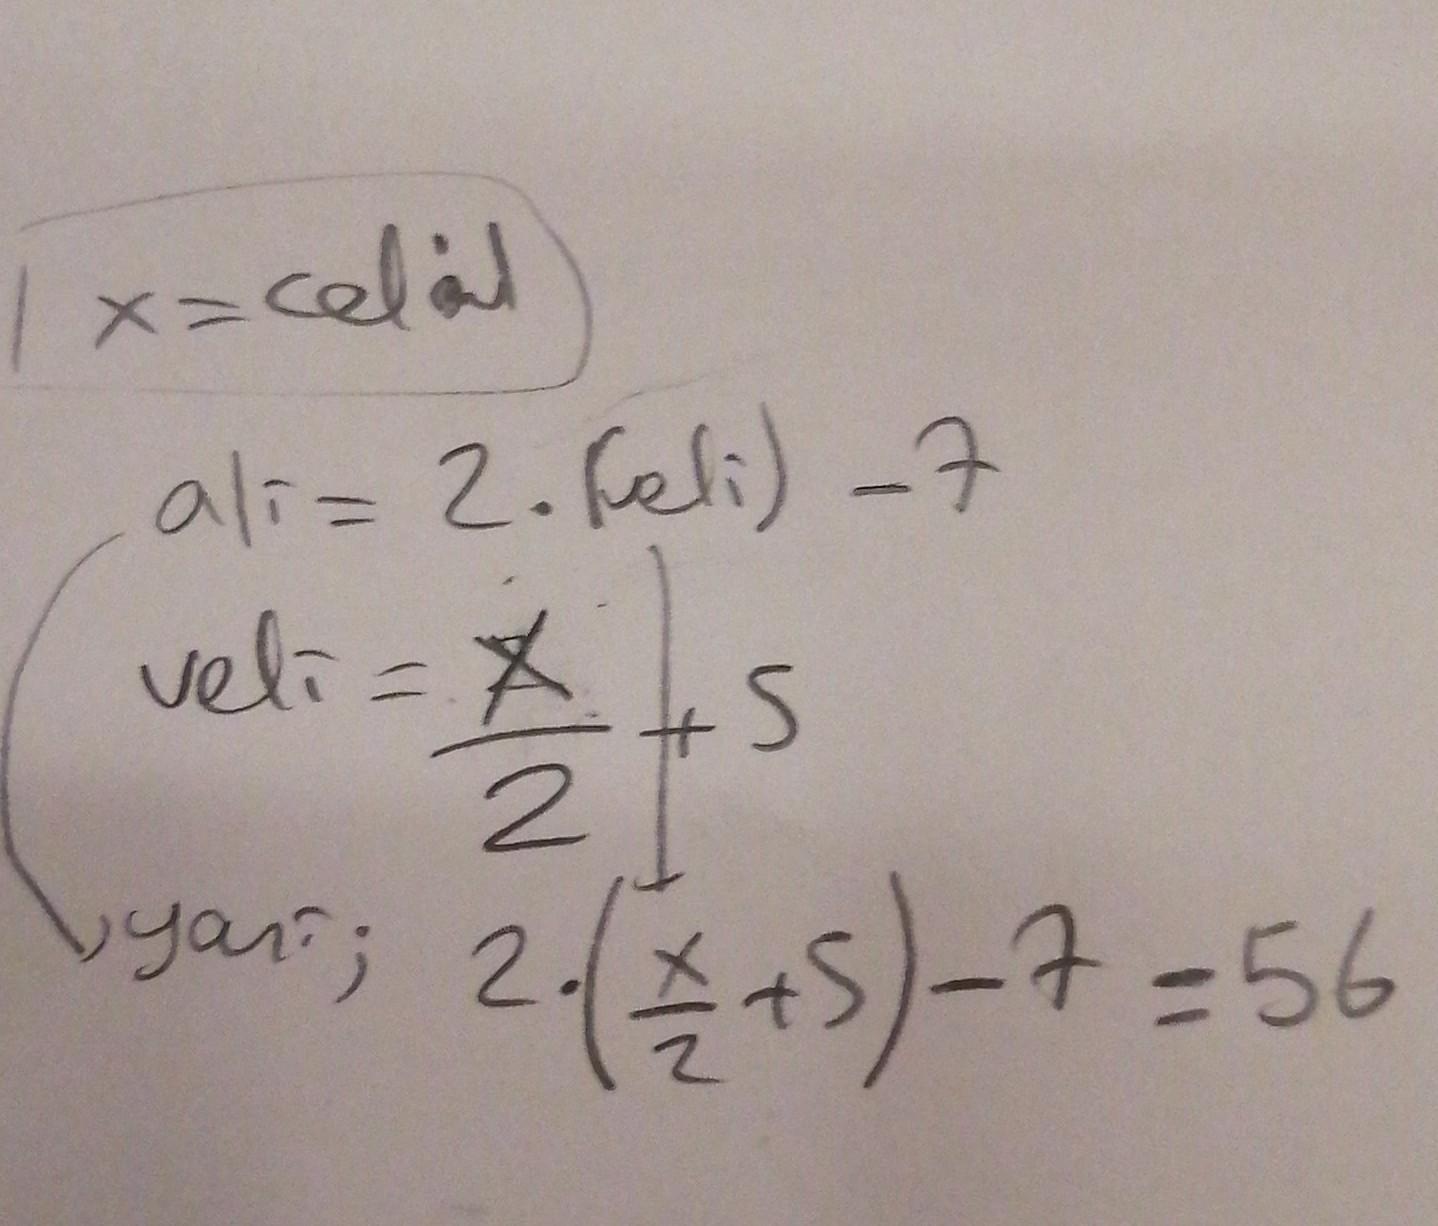 x = celal
ali = 2 . (veli) - 7
veli = x/2 + 5
yani; 2 . (x/2 + 5) - 7 = 56